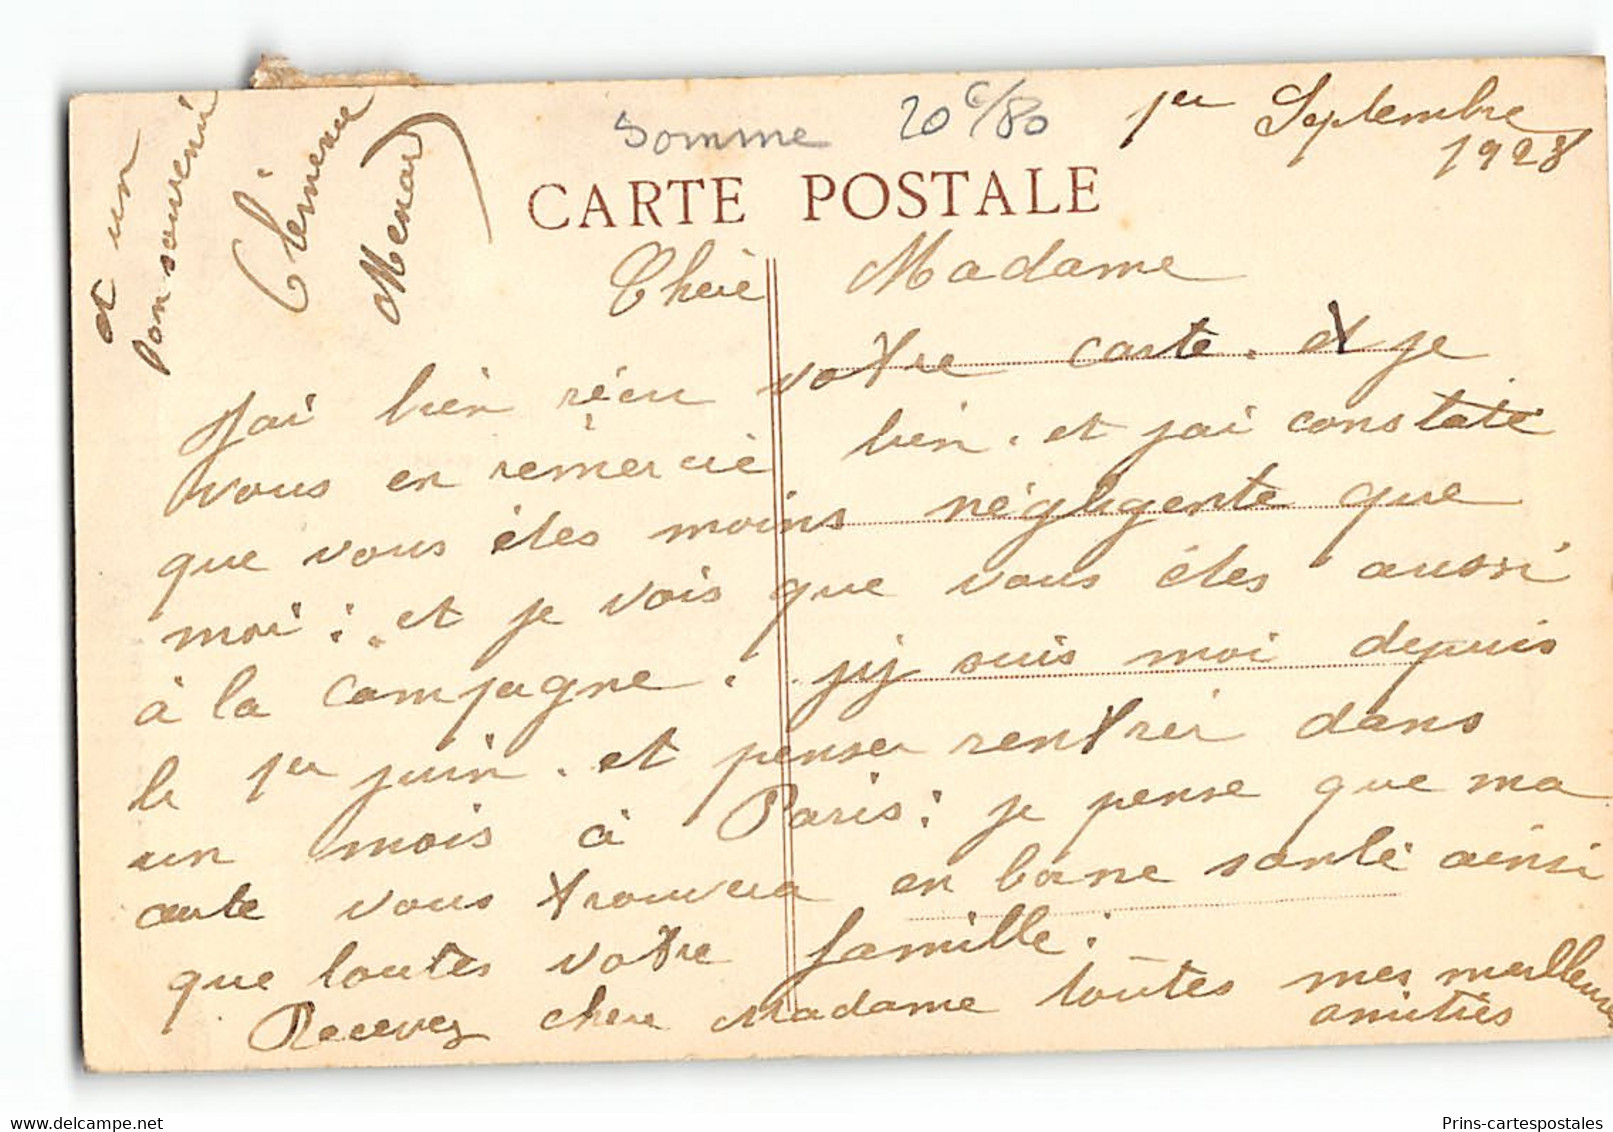 Somme 20 c/80
1er Septembre
1928
CARTE POSTALE
Chère Madame
J'ai bien réçu votre carte. et je
vous en remercie bien. et j'ai constaté
que vous êtes moins négligente que
moi : et je vois que vous êtes aussi
à la campagne. j'y suis moi depuis
le 1er juin. et penser rentrer dans
un mois à Paris : je pense que ma
carte vous trouvera en bonne santé ainsi
que toutes votre famille :
Recevez chere Madame toutes mes meilleures
amitiés
et un
bon souvenir
Clémence
Menard
Prins-cartespostales